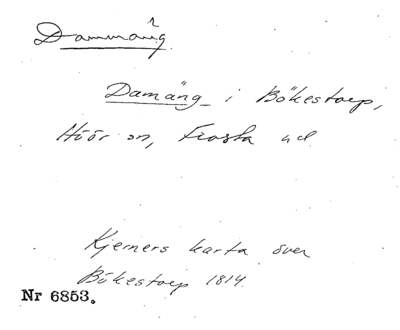 Dammäng
Damäng i Bökestorp,
Höör sn, Frosta hd
Kjerners karta över
Bökestorp 1814.
Nr 6853.